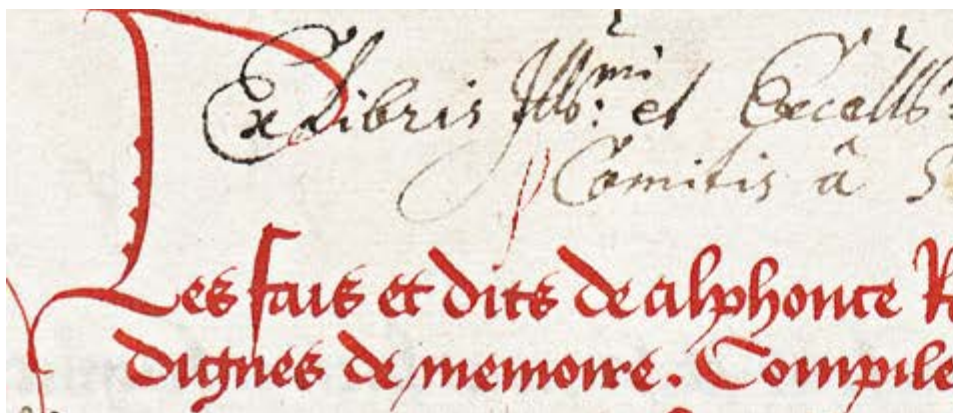 Ex Libris Illb: mi et Excellb:
Comitis â S
Les fais et dits de alphonce R
dignes de memoire. Compile